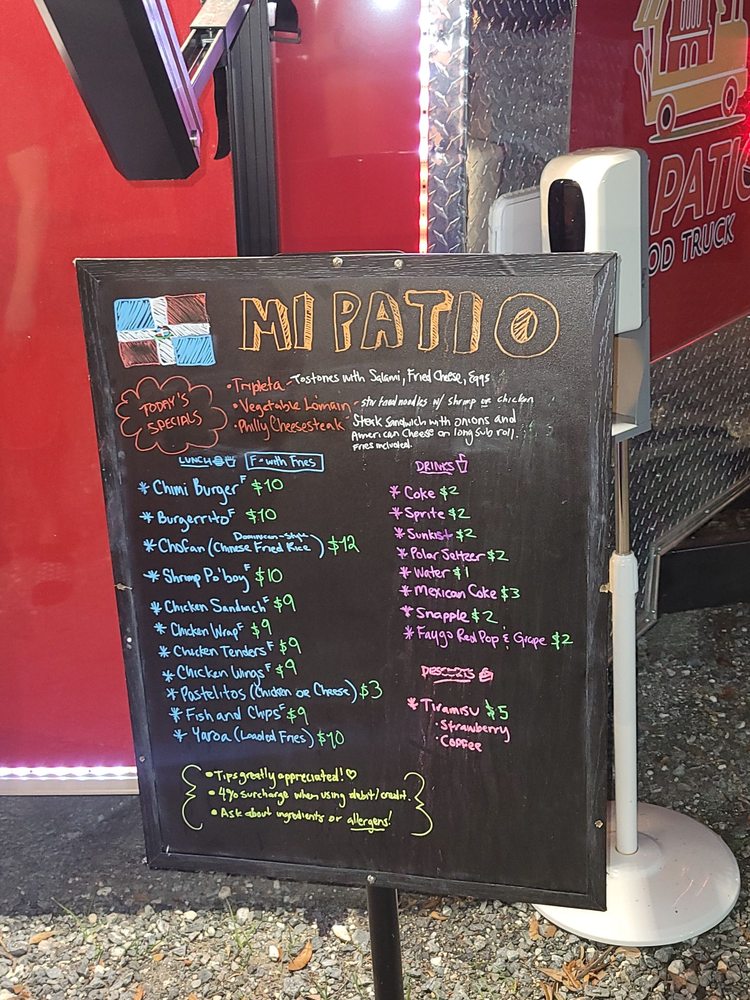 PATIO
OD TRUCK
MI PATIO
TODAY'S
SPECIALS
• Tripleta - Tostones with Salami, Fried Cheese, Eggs
• Vegetable Lo'main - stir fried noodles w/ shrimp or chicken
• Philly Cheesesteak - Steak Sandwich with onions and
American Cheese on long sub roll.
Fries included.
LUNCH
F = with Fries
* Chimi Burger F $10
* Burgerrito F $10
* Chofan (Dominican-Style
Chinese Fried Rice) $12
* Shrimp Po'boy F $10
* Chicken Sandwich F $9
* Chicken Wrap F $9
* Chicken Tenders F $9
* Chicken Wings F $9
* Pastelitos (Chicken or Cheese) $3
* Fish and Chips F $9
* Yaroa (Loaded Fries) $10
DRINKS
* Coke $2
* Sprite $2
* Sunkist $2
* Polar Seltzer $2
* Water $1
* Mexican Coke $3
* Snapple $2
* Faygo Red Pop & Grape $2
* Tiramisu $5
• Strawberry
• Coffee
• Tips greatly appreciated! ♡
• 4% surcharge when using debit/credit.
• Ask about ingredients or allergens!